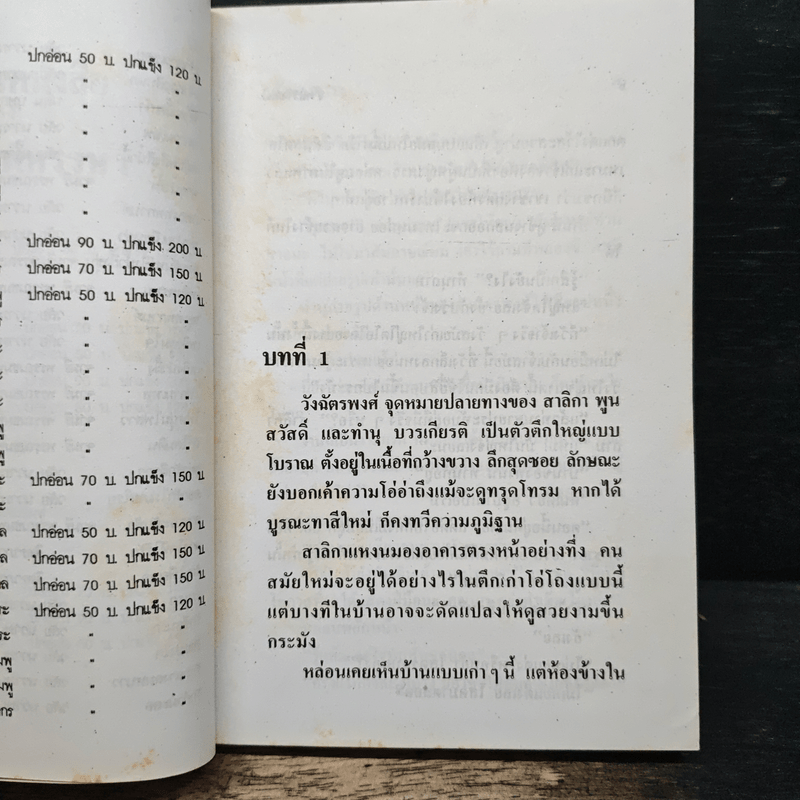 ปกอ่อน 50 บ. ปกแข็ง 120 บ.
" "
" "
" "
" "
" "
" "
ปกอ่อน 90 บ. ปกแข็ง 200 บ
ปกอ่อน 70 บ. ปกแข็ง 150 บ.
ปกอ่อน 50 บ. ปกแข็ง 120 บ
" "
" "
" "
" "
" "
" "
ปกอ่อน 70 บ. ปกแข็ง 150 บ.
" "
ปกอ่อน 50 บ. ปกแข็ง 120 บ
ปกอ่อน 70 บ. ปกแข็ง 150 บ
ปกอ่อน 70 บ. ปกแข็ง 150 บ
ปกอ่อน 50 บ. ปกแข็ง 120 บ
" "
" "
" "
" "
บทที่ 1
วังฉัตรพงศ์ จุดหมายปลายทางของ สาลิกา พูน
สวัสดิ์ และทำนุ บวรเกียรติ เป็นตัวตึกใหญ่แบบ
โบราณ ตั้งอยู่ในเนื้อที่กว้างขวาง ลึกสุดซอย ลักษณะ
ยังบอกเค้าความโอ่อ่าถึงแม้จะดูทรุดโทรม หากได้
บูรณะทาสีใหม่ ก็คงทวีความภูมิฐาน
สาลิกาแหงนมองอาคารตรงหน้าอย่างทึ่ง คน
สมัยใหม่จะอยู่ได้อย่างไรในตึกเก่าโอ่โถงแบบนี้
แต่บางทีในบ้านอาจจะดัดแปลงให้ดูสวยงามขึ้น
กระมัง
หล่อนเคยเห็นบ้านแบบเก่า ๆ นี้ แต่ห้องข้างใน